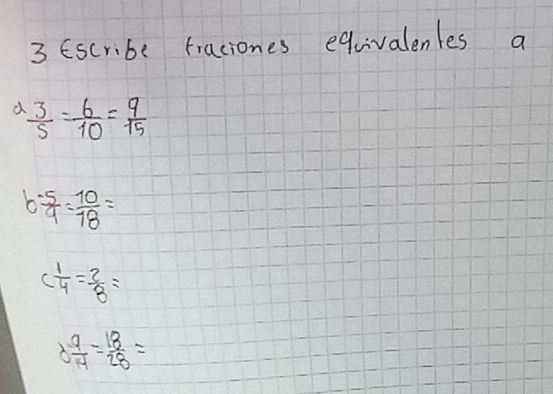 3 Escribe fraciones equivalentes a
a 3/5 = 6/10 = 9/15
b 5/9 = 10/18 =
c 1/4 = 2/8 =
d 9/14 = 18/28 =